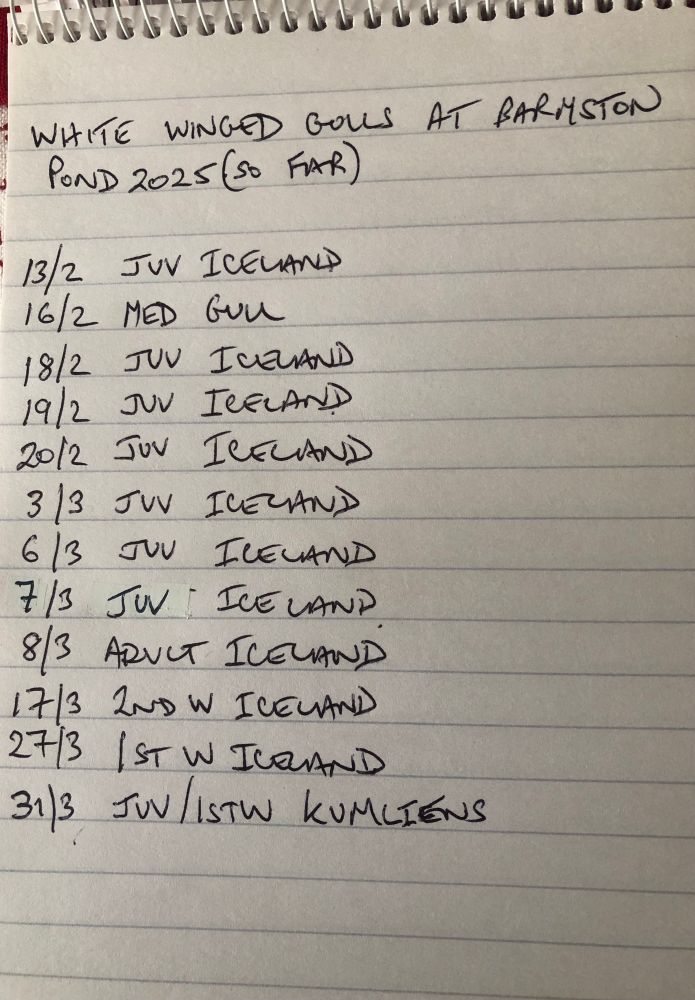 WHITE WINGED GULLS AT BARMSTON
POND 2025 (SO FAR)
13/2 JUV ICELAND
16/2 MED GULL
18/2 JUV ICELAND
19/2 JUV ICELAND
20/2 JUV ICELAND
3/3 JUV ICELAND
6/3 JUV ICELAND
7/3 JUV ICELAND
8/3 ADULT ICELAND
17/3 2ND W ICELAND
27/3 1ST W ICELAND
31/3 JUV/1STW KUMLIENS